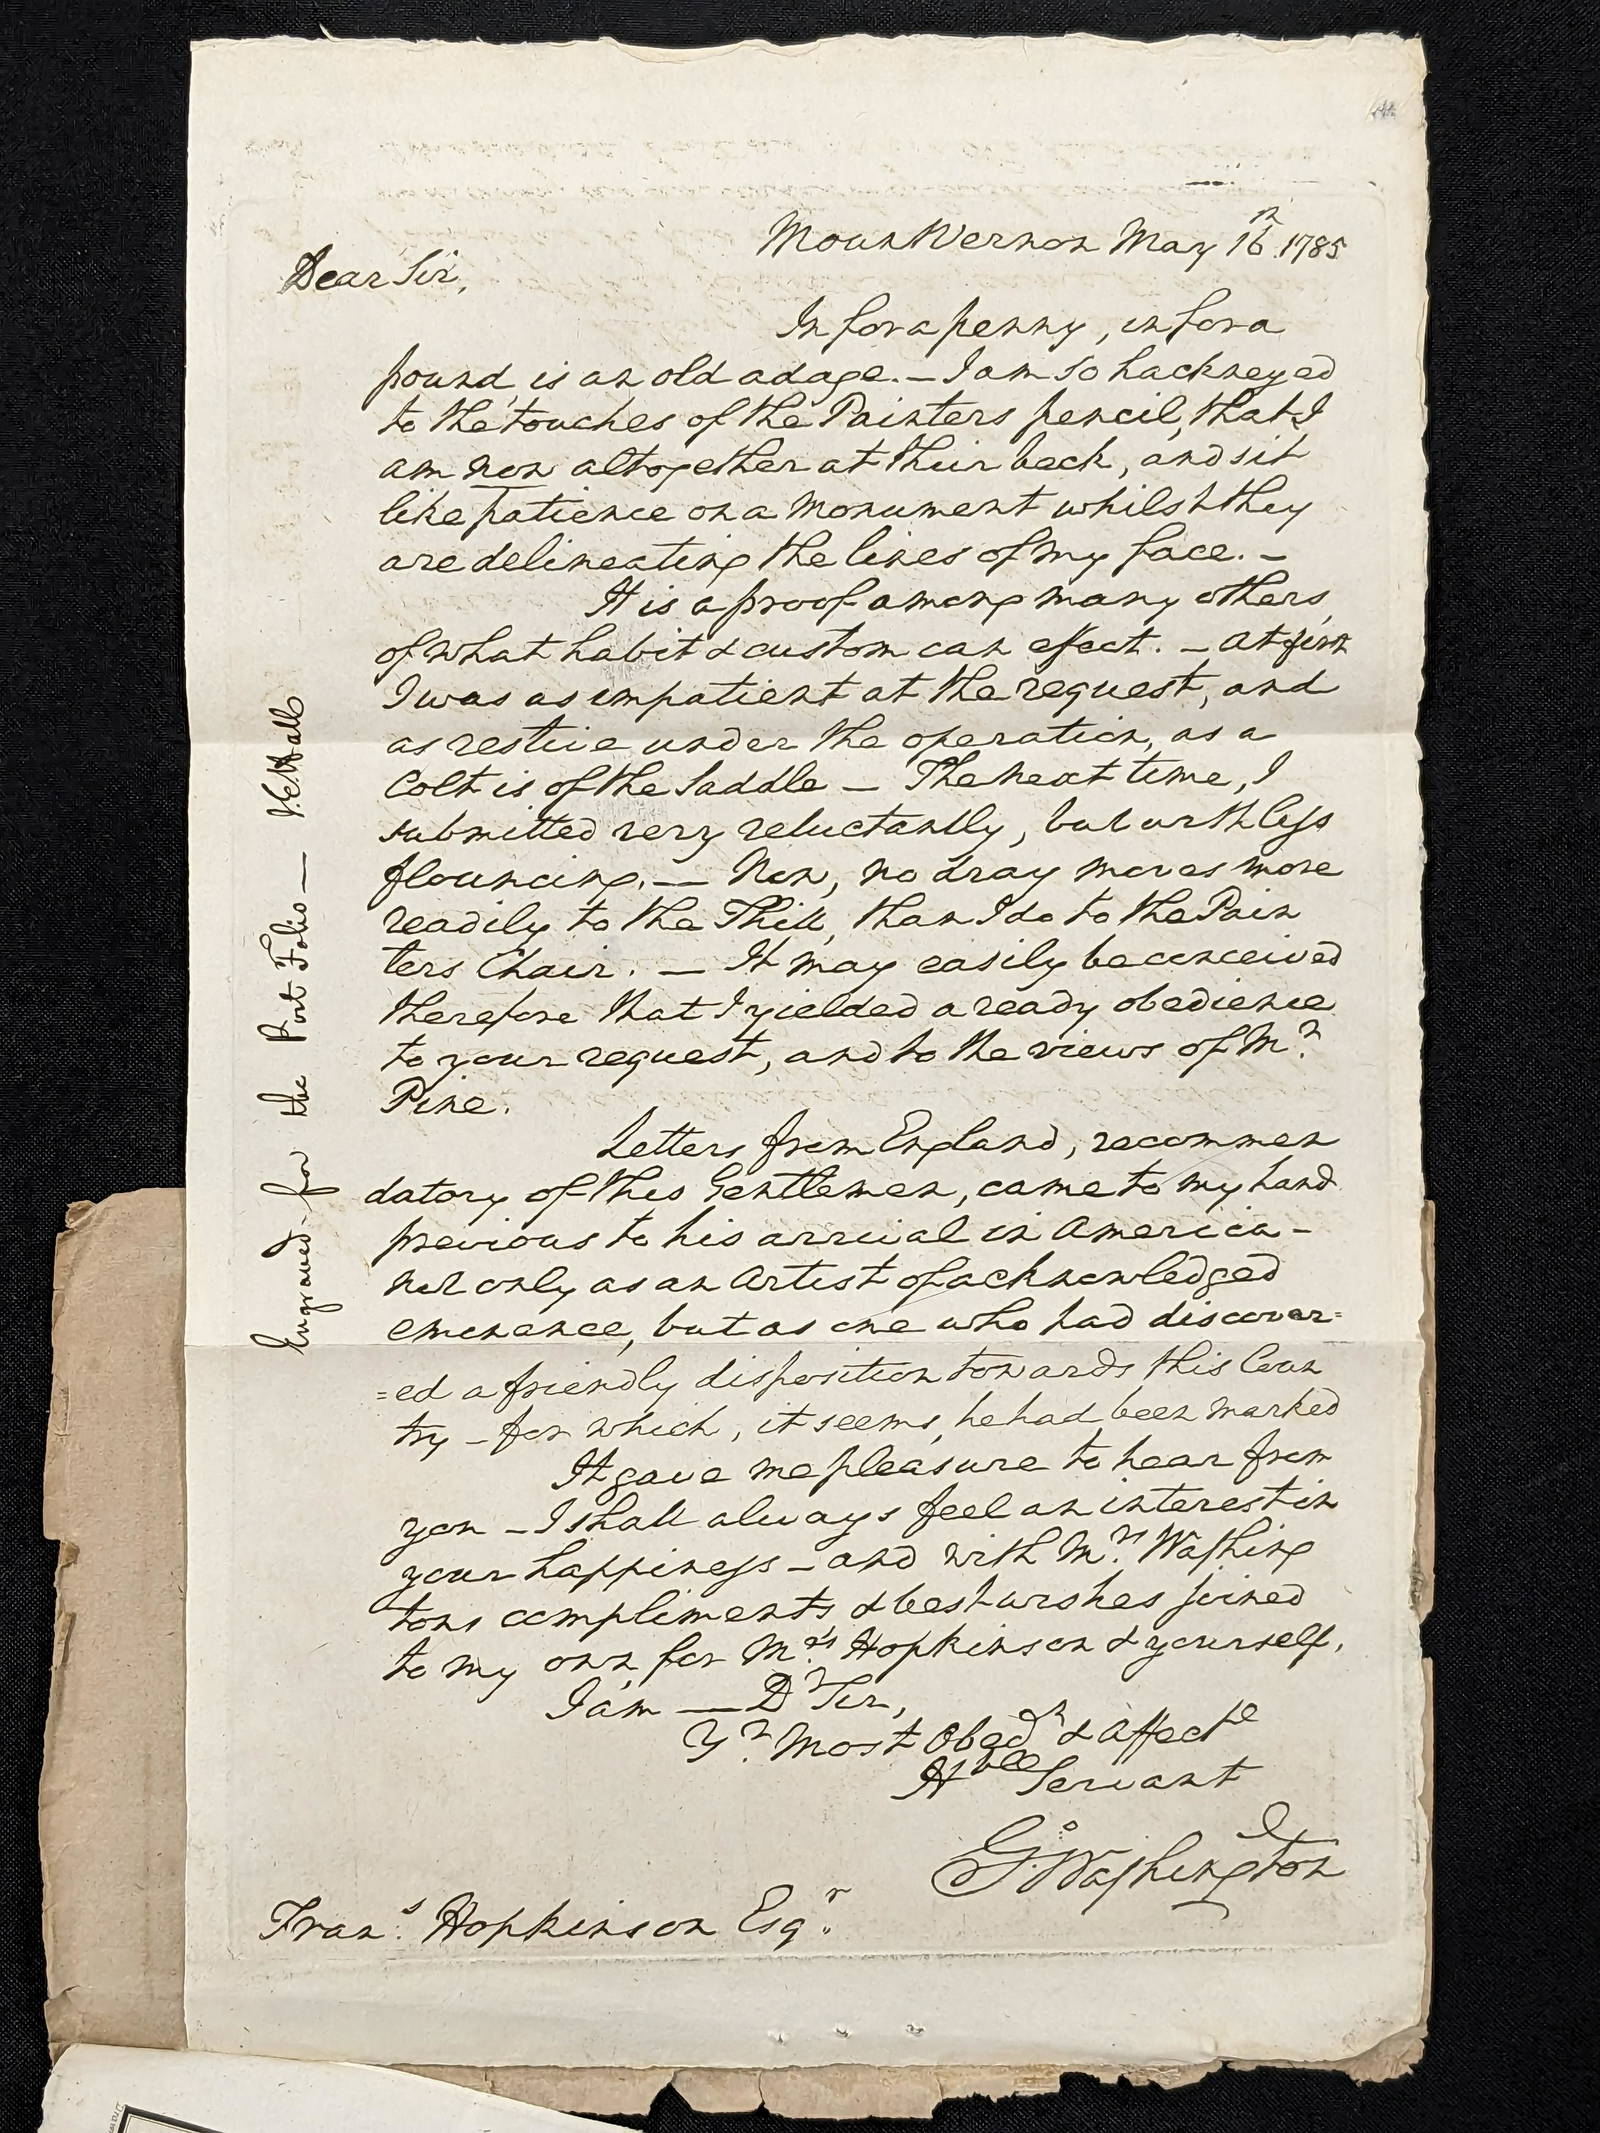 Mount Vernon May 16th. 1785
Dear Sir,
In for a penny, in for a
pound, is an old adage. — I am so hackneyed
to the touches of the Painters pencil, that I
am now altogether at their beck, and sit
like patience on a Monument whilst they
are delineating the lines of my face. —
It is a proof among many others,
of what habit & custom can effect. — At first
I was as impatient at the request, and
as restive under the operation, as a
Colt is of the Saddle — The next time, I
submitted very reluctantly, but with less
flouncing. — Now, no dray moves more
readily to the Thill, than I do to the Pain
ters Chair. — It may easily be conceived
therefore that I yielded a ready obedience
to your request, and to the views of Mr.
Pine.
Letters from England, recommen
datory of this Gentlemen, came to my hand
previous to his arrival in America —
not only as an Artist of acknowledged
eminence, but as one who had discover=
=ed a friendly disposition towards this Coun
try — for which, it seems, he had been marked
It gave me pleasure to hear from
you — I shall always feel an interest in
your happiness — and with Mrs. Washing
tons compliments & best wishes joined
to my own, for Mrs. Hopkinson & yourself,
I am — Dr Sir,
Yr. Most Obedt & Affecte
Hble Servant
Go. Washington
Frans. Hopkinson Esqr.
Engraved for the Port Folio — J. E. Hall